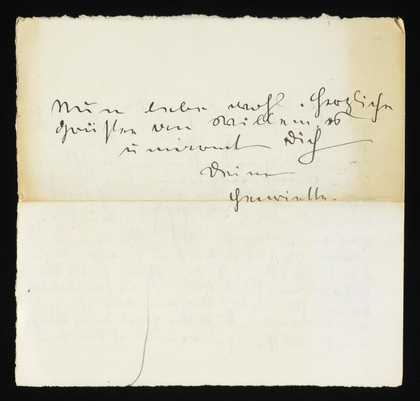 Nun lebe wohl. Herzliche
Grüße von Willem, es
umarmt Dich
Deine
Henriette.